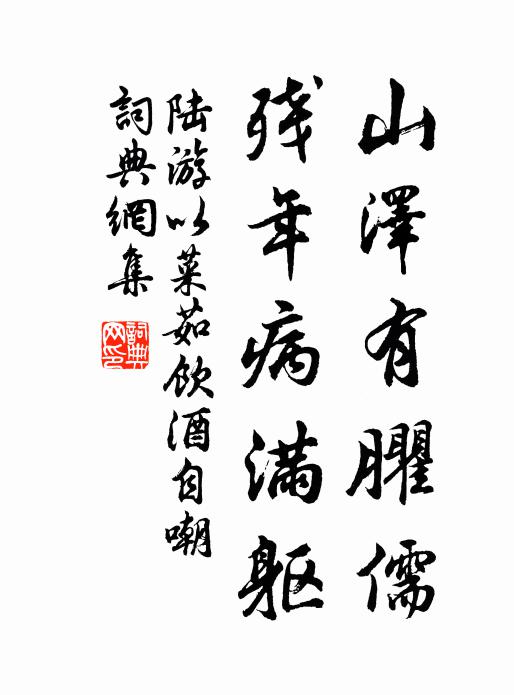 山澤有臞儒
残年病满躯
陆游以菜茹饮酒自嘲
詞典網集
詞典网印